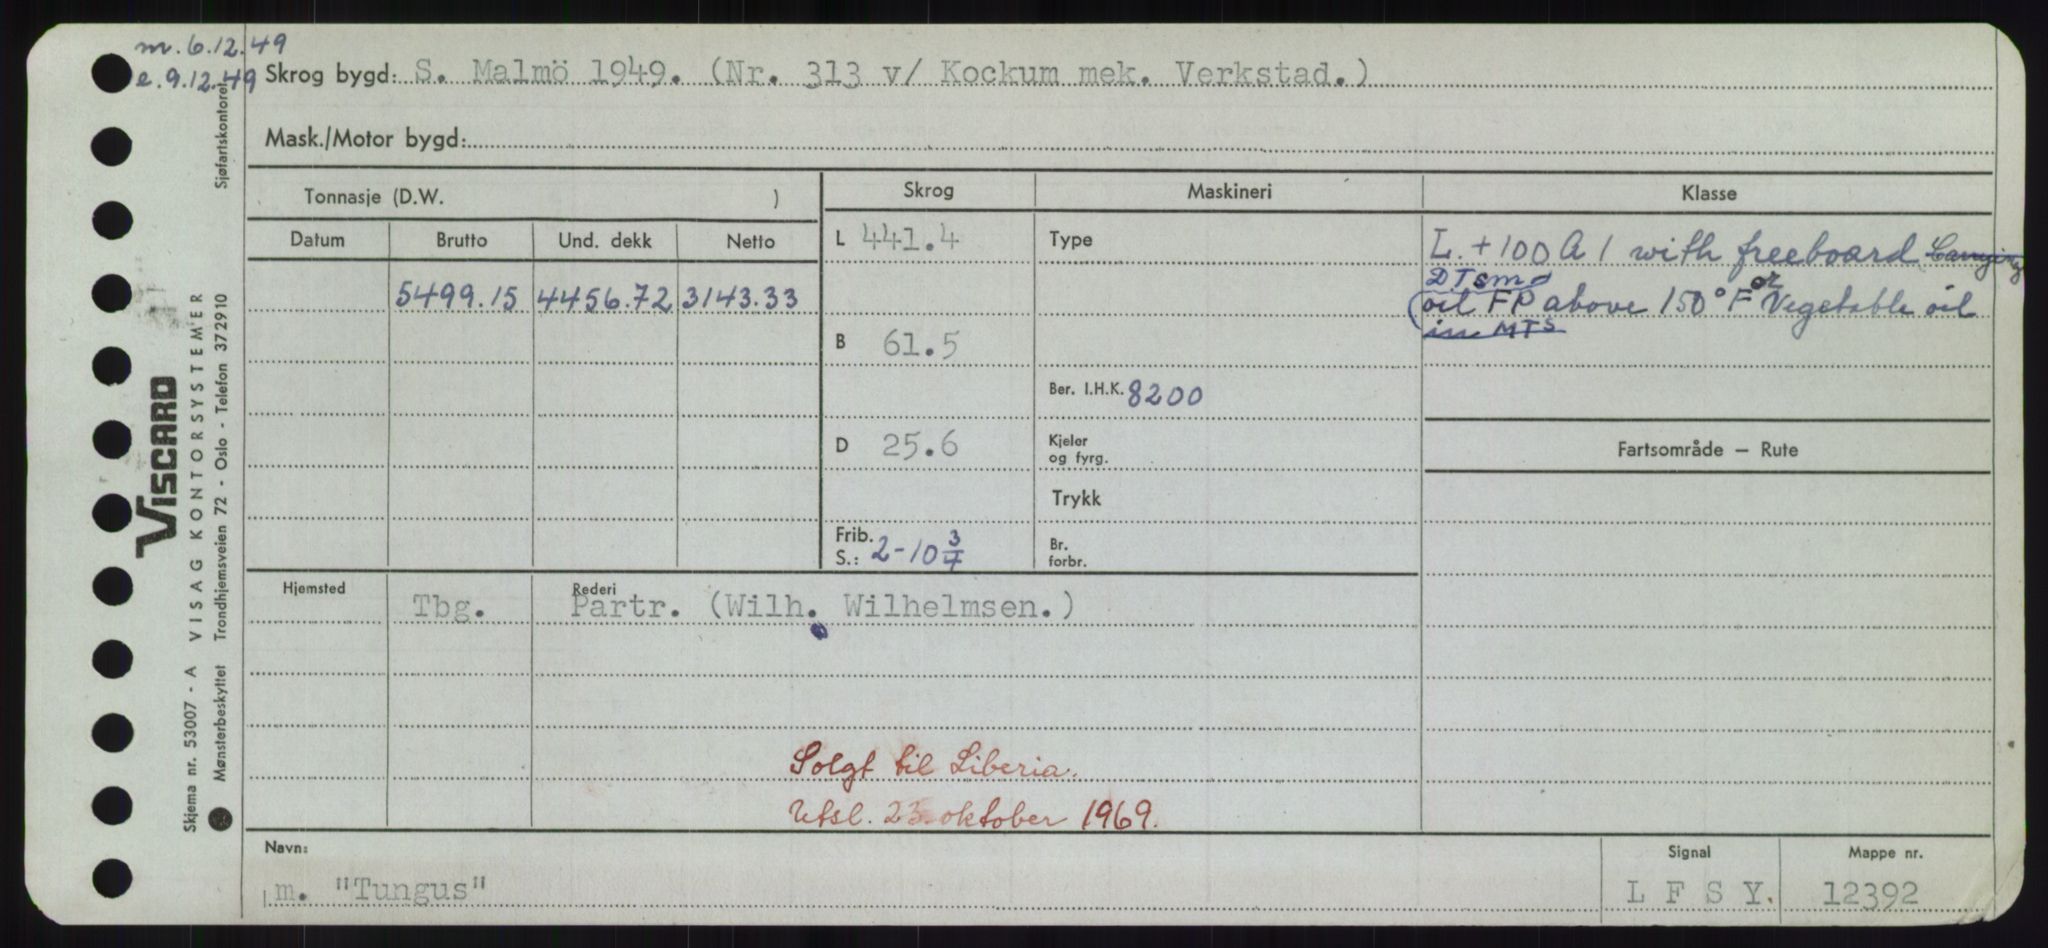 m. 6.12.49
e. 9.12.49
Skrog bygd: S. Malmö 1949. (Nr. 313 v/ Kockum mek. Verkstad.)
Mask./Motor bygd:
Tonnasje (D.W. )
Skrog
Maskineri
Klasse
Datum
Brutto
Und. dekk
Netto
5499.15 4456.72 3143.33
L 441.4
B 61.5
D 25.6
Frib.
S.: 2-10 3/4
Type
Ber. I.H.K. 8200
Kjeler
og fyrg.
Trykk
Br.
forbr.
L. + 100 A 1 with freeboard, Carrying
oil FP above 150° F or Vegetable oil
in MTS
Fartsområde — Rute
Hjemsted
Tbg.
Rederi
Partr. (Wilh. Wilhelmsen.)
Solgt til Liberia.
Utsl. 23. oktober 1969.
Navn:
m. "Tungus"
Signal
L F S Y.
Mappe nr.
12392
VISCARD
Skjema nr. 53007 - A VISAG KONTORSYSTEMER
Mønsterbeskyttet Trondhjemsveien 72 - Oslo - Telefon 372910 Sjøfartskontoret